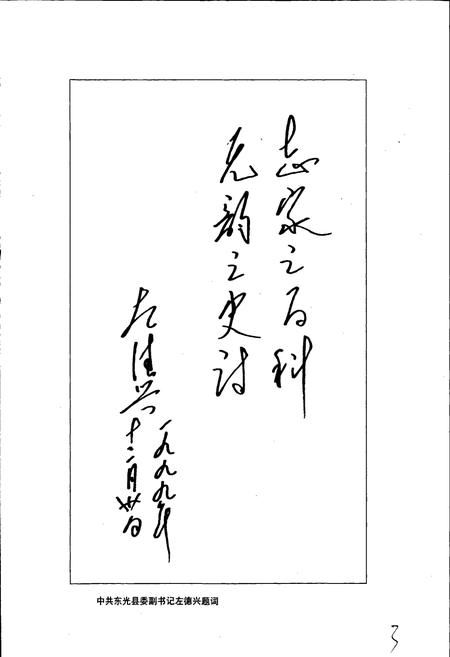 志家之百科
无韵之史诗
左德兴
一九九九年
十二月廿日
中共东光县委副书记左德兴题词
3